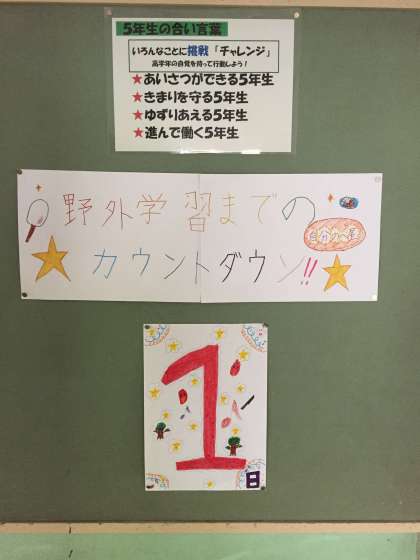 5年生の合い言葉
いろんなことに挑戦「チャレンジ」
高学年の自覚を持って行動しよう！
★あいさつができる5年生
★きまりを守る5年生
★ゆずりあえる5年生
★進んで働く5年生
野外学習までの
カウントダウン!!
1
日